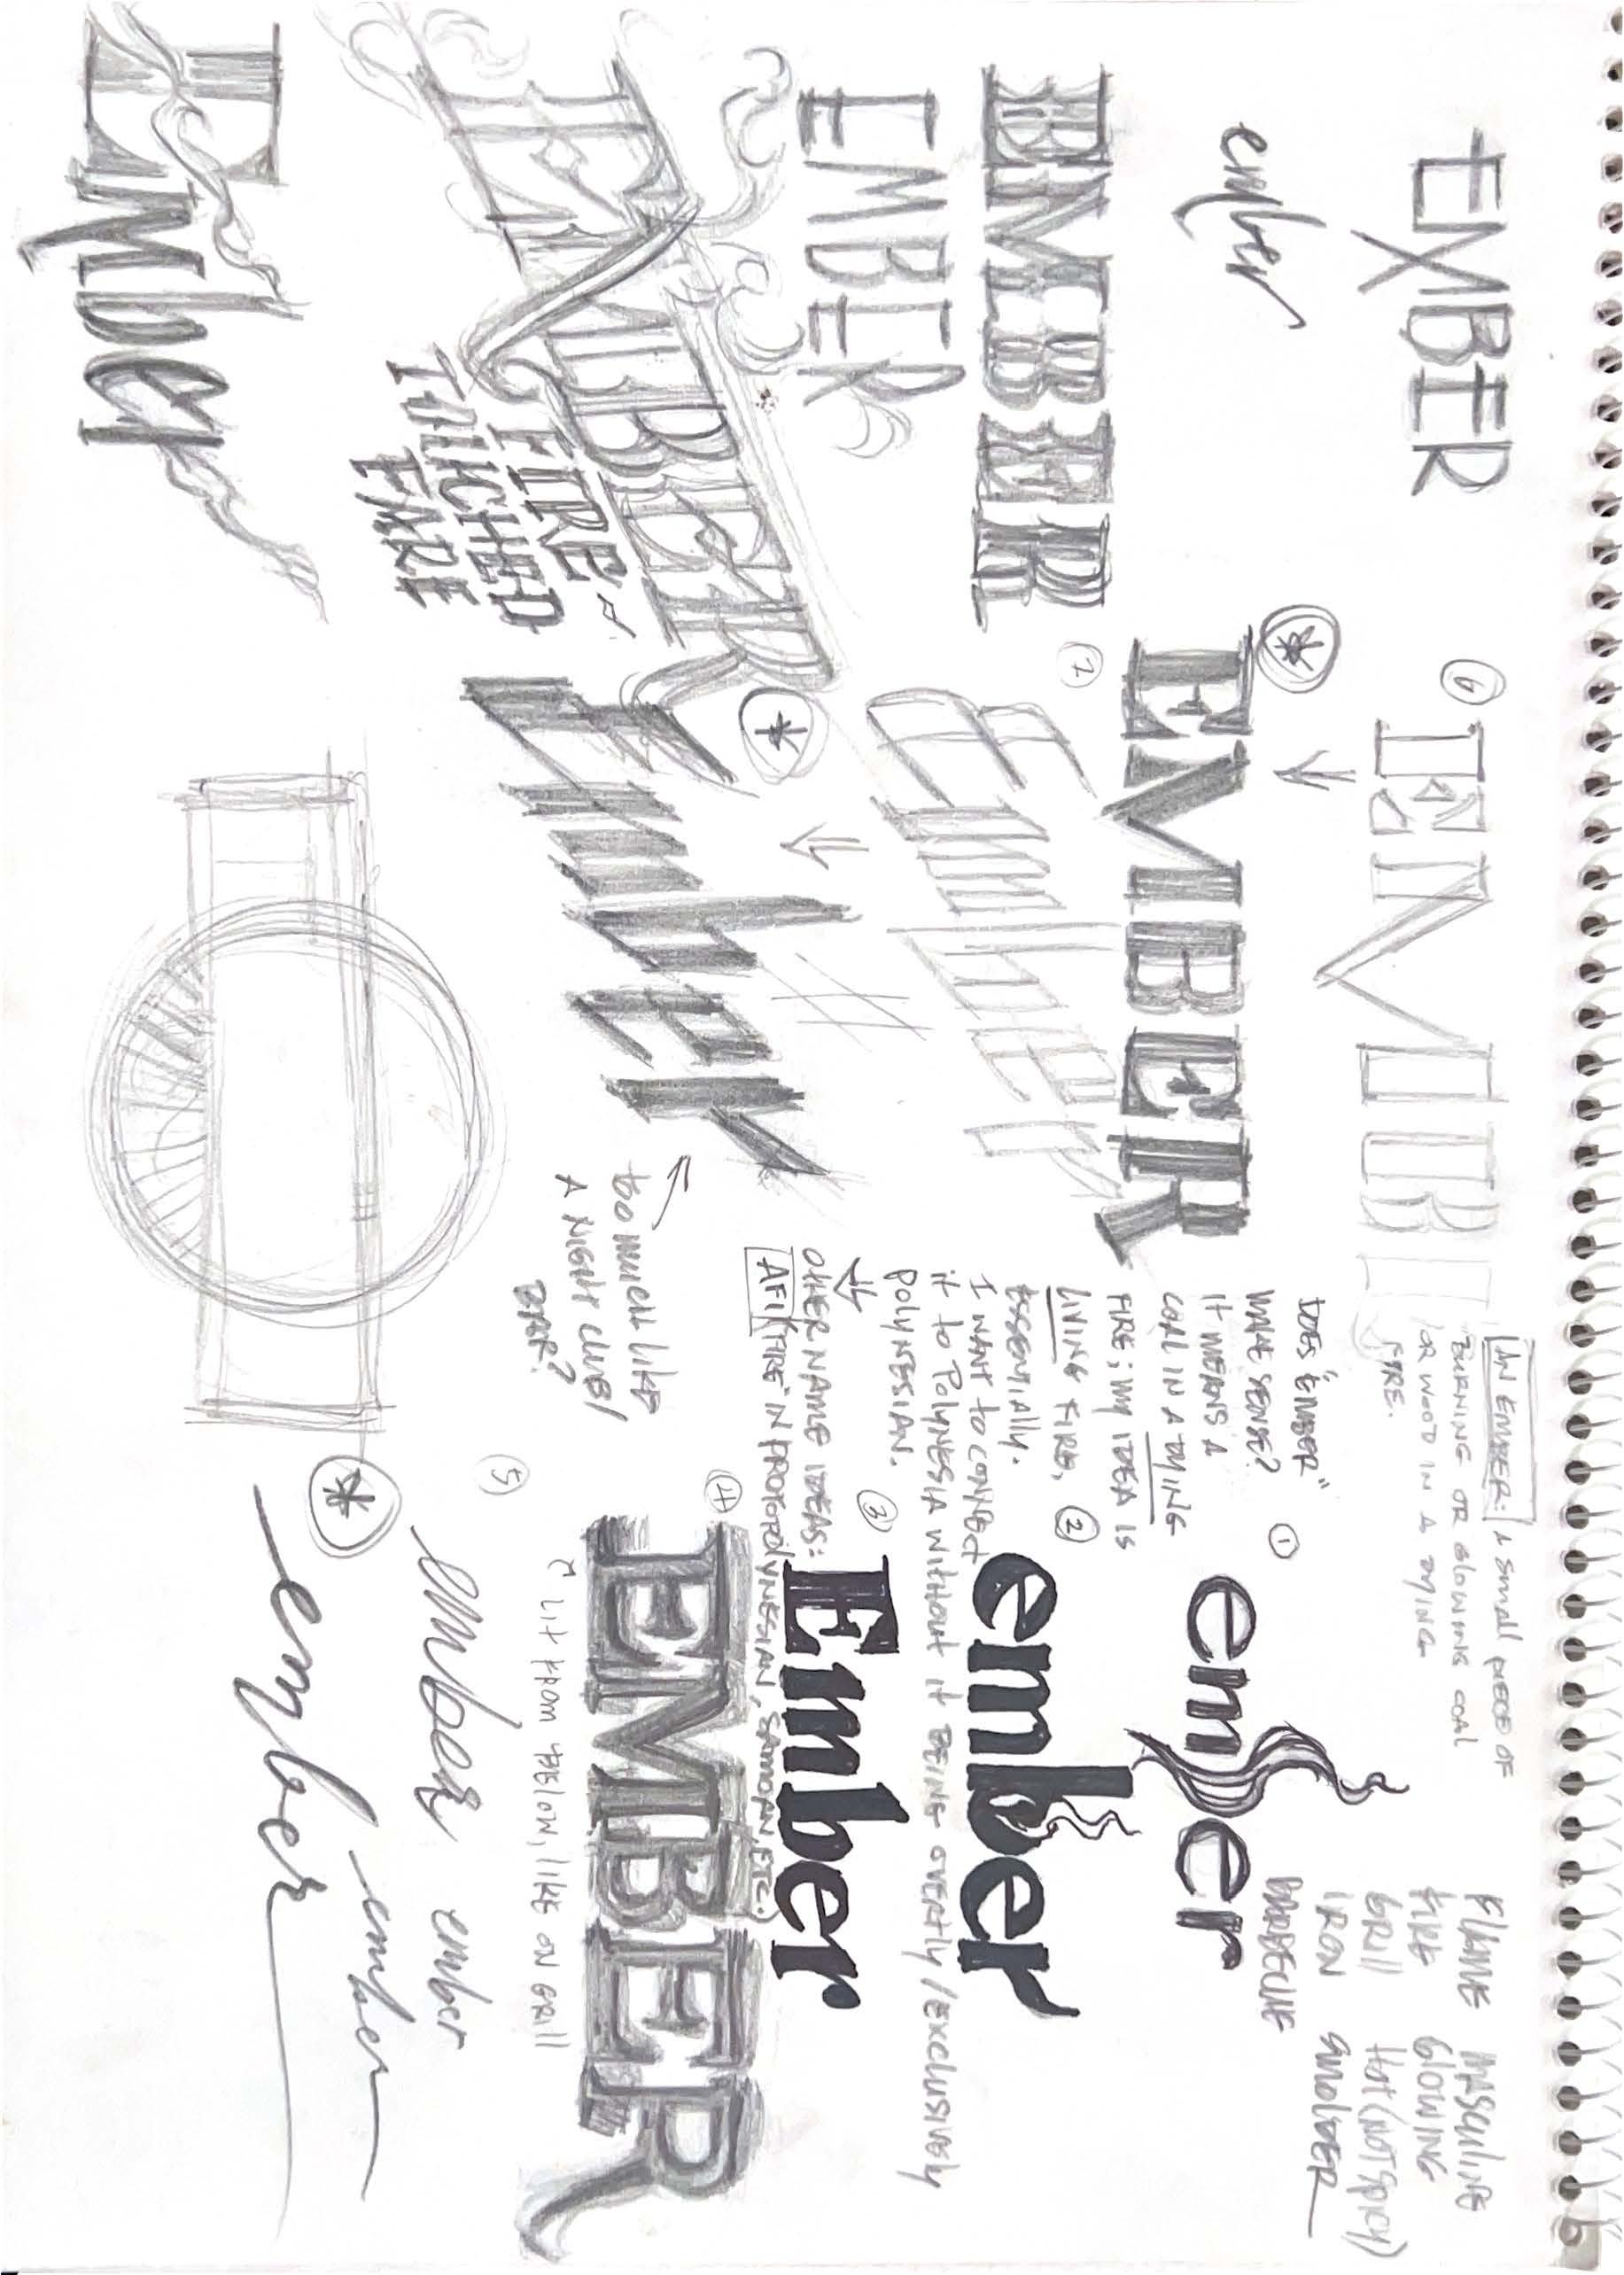 EMBER
ember
EMBER
EMBER
EMBER
FIRE-
TOUCHED
FARE
Ember
6
EMB
*
EMBER
7
Ember
*
Ember
too much like
A NIGHT CLUB/
BAR?
AN EMBER: A small piece of
BURNING OR GLOWING COAL
OR WOOD IN A DYING
FIRE.
DOES "EMBER"
MAKE SENSE?
IT MEANS A
COAL IN A DYING
FIRE; MY IDEA IS
LIVING FIRE,
ESSENTIALLY.
I WANT to CONNECT
it to Polynesia without it BEING overtly/exclusively
Polynesian.
OTHER NAME IDEAS:
AFI ("FIRE" IN PROTOPOLYNESIAN, SAMOAN, ETC.)
FLAME
FIRE
GRILL
IRON
BARBECUE
MASCULINE
GLOWING
Hot (NOT SPICY)
SMOLDER
1
ember
2
ember
3
Ember
4
EMBER
LIT FROM BELOW, LIKE ON GRILL
5
ember
ember
ember
*
ember